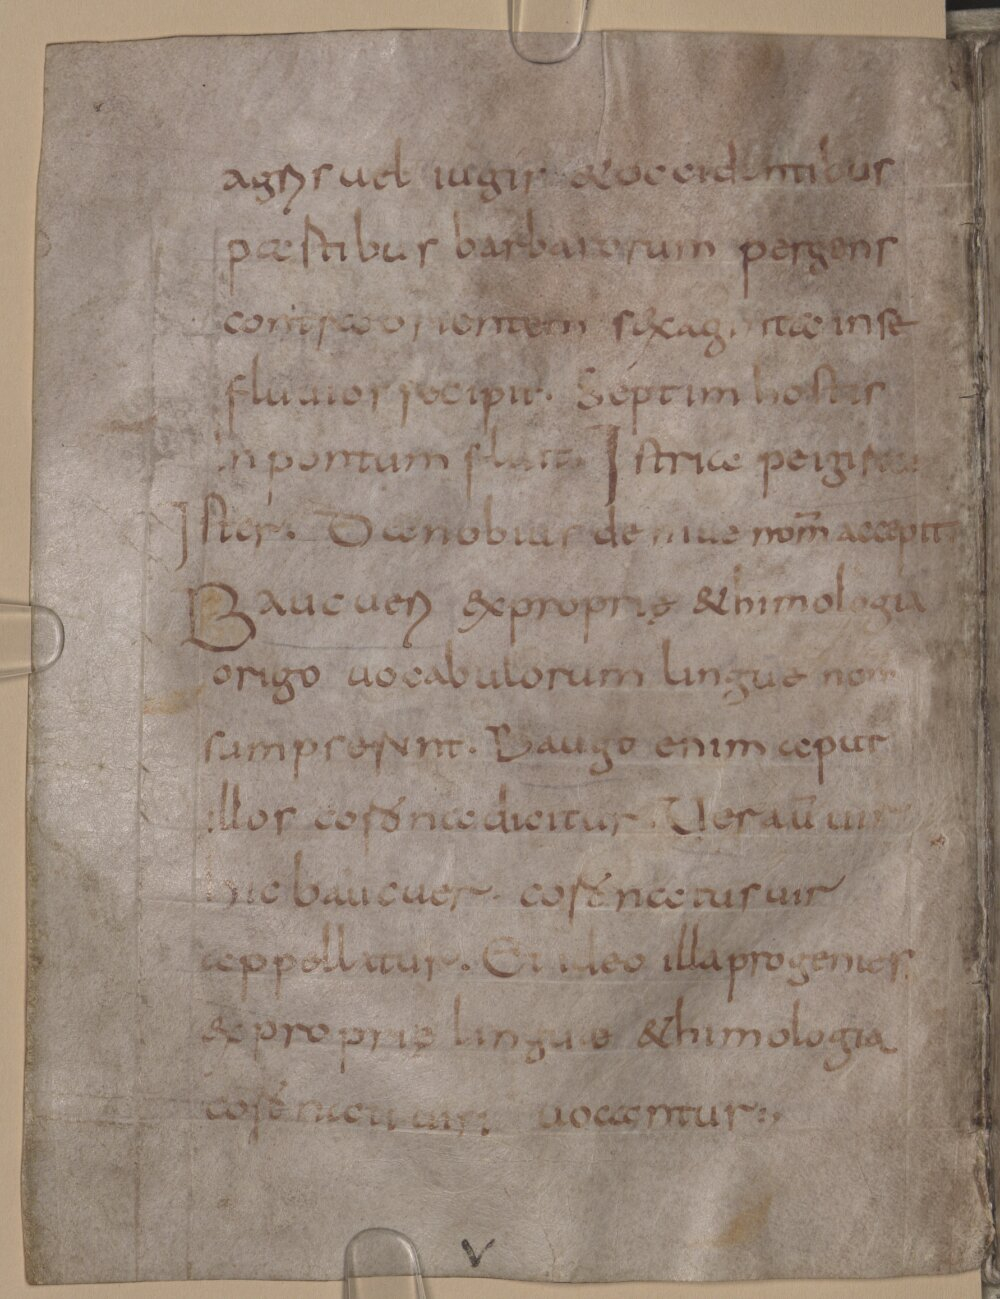 uel iugis & occidentibus
partibus barbarorum pergens
contra orientem sexaginta in se
fluuios recipit. Septim hostiis
in pontum fluit. Istria pe
Ister. Danobius de niue nom̄ accepit
Baucueri ex proprię &himologia
origo uocabulorum lingue nom
sampserunt. Baugo enim aput
illos corona dicitur. Uer aū uir
hic baucuer. coronatus uir
appellatur. Et ideo illa progenies
ex proprię linguae &himologia
uocantur:,
v